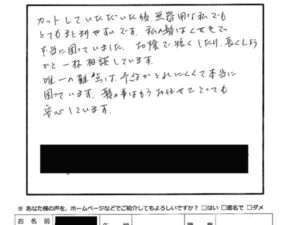 カットしていただいた後 無器用な私でも
とてもまとめやすいです。私の髪はくせ毛で
本当に困っていました。お陰で短くしたり、長くしよう
かと一杯相談しています。
唯一の難点は、予約がとれにくくて本当に
困っています。髪の事はもうお任せでとっても
安心しています。
※ あなた様の声を、ホームページなどでご紹介してもよろしいですか？ □はい □匿名で □ダメ
お名前